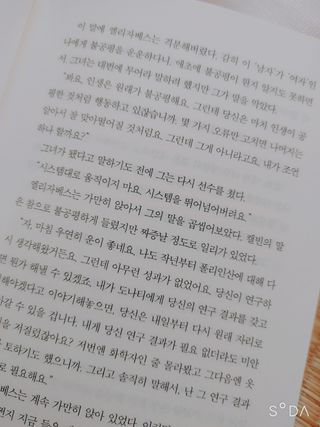 이 말에 엘리자베스는 격분해버렸다. 감히 이 '남자'가 '여자'인
나에게 불공평을 운운하다니. 애초에 불공평이 뭔지 알지도 못하면
서. 그녀는 대번에 쏘아라 말하려 했지만 그가 말을 막았다.
"봐요, 인생은 원래가 불공평해요. 그런데 당신은 마치 인생이 공
평한 것처럼 행동하고 있잖습니까. 몇 가지 오류만 고치면 나머지는
알아서 잘 맞아떨어질 것처럼요. 그런데 그게 아니라고요. 내가 조언
하나 할까요?"
그녀가 됐다고 말하기도 전에 그는 다시 선수를 쳤다.
"시스템대로 움직이지 마요. 시스템을 뛰어넘어버려요."
엘리자베스는 가만히 앉아서 그의 말을 곱씹어보았다. 캘빈의 말
은 참으로 불공평하게 들렸지만 짜증날 정도로 일리가 있었다.
"자, 마침 우연히 운이 좋네요. 나도 작년부터 폴리인산에 대해 다
시 생각해왔거든요. 그런데 아무런 성과가 없었어요. 당신이 연구하
면 뭔가 해낼 수 있겠죠. 내가 도나티에게 당신의 연구 결과를 갖고
해야겠다고 이야기해놓으면, 당신은 내일부터 다시 원래 자리로
아갈 수 있을 겁니다. 내게 당신 연구 결과가 필요 없더라도 미안
을 저질렀잖아요? 저번엔 화학자인 줄 몰라봤고 그다음엔 옷
토하기도 했으니까. 그리고 솔직히 말해서, 난 그 연구 결과
로 필요해요."
베스는 계속 가만히 앉아 있었다.
SODA